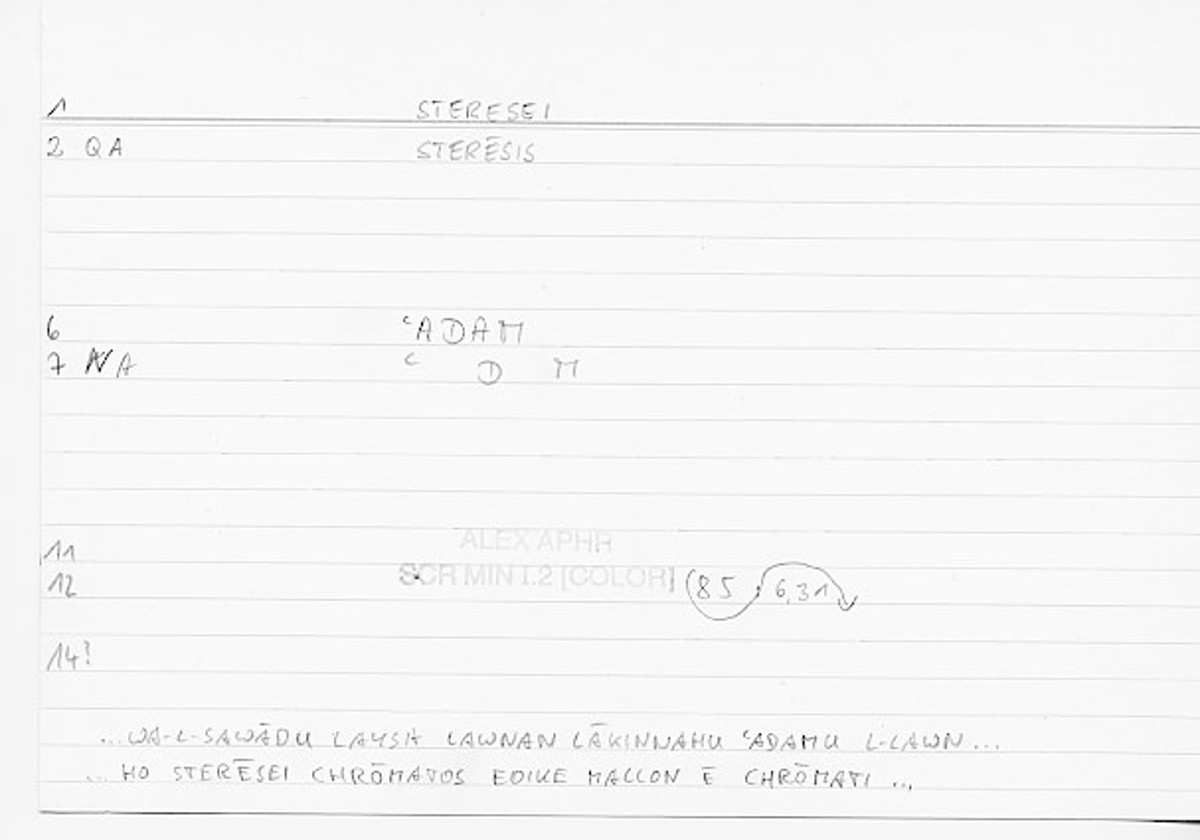 1 STERESEI
2 QA STERĒSIS
6 ʿADAM
7 NA ʿ D M
11 ALEX APHR
12 SCR MIN I.2 [COLOR] (85 6,31)
14?
...WA-L-SAWĀDU LAYSA LAWNAN LĀKINNAHU ʿADAMU L-LAWN...
... HO STERĒSEI CHRŌMATOS EOIKE MALLON Ē CHRŌMATI ...